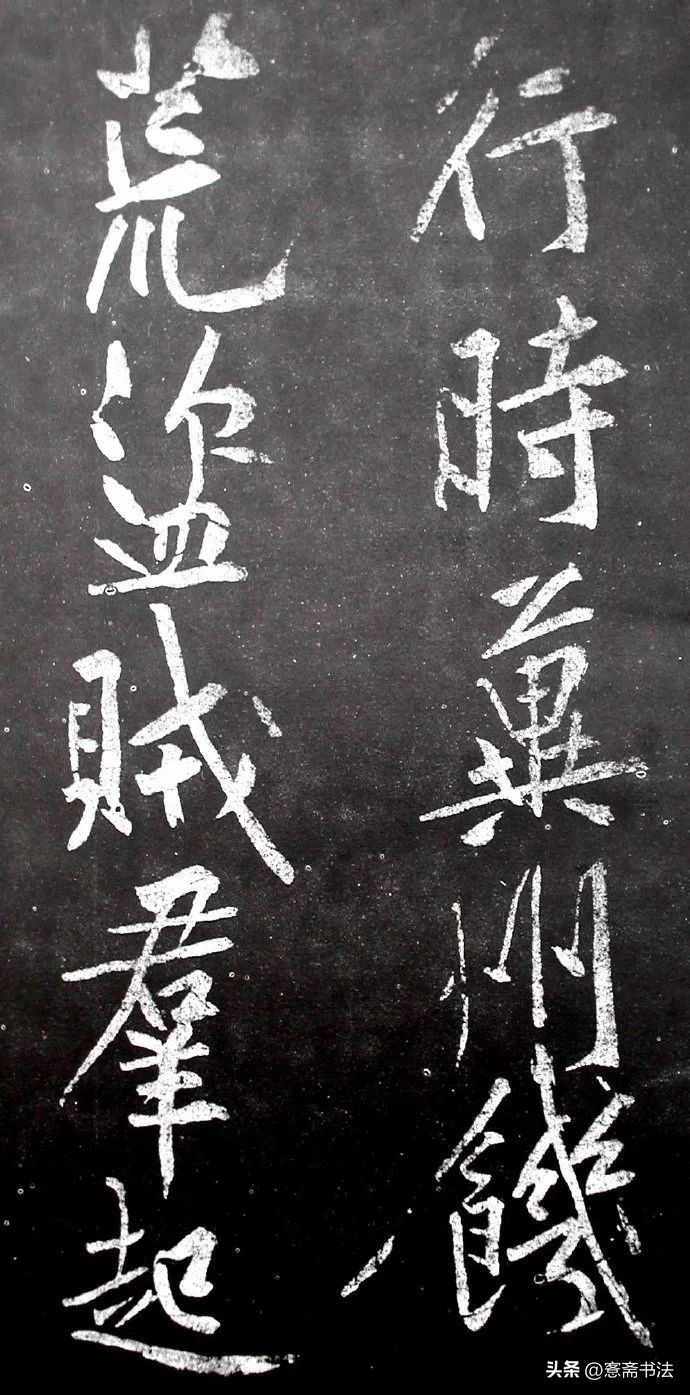 行時冀州饑
荒盗賊羣起
头条 @愙斋书法